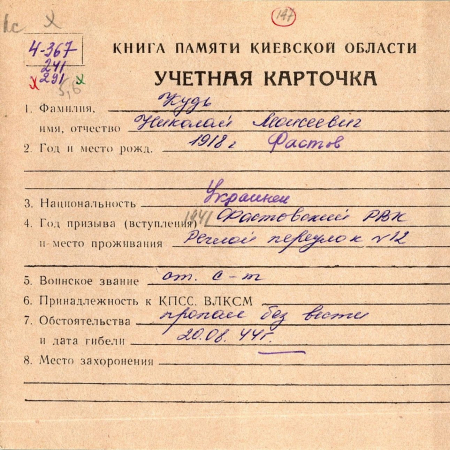 147
4-367
241
291
КНИГА ПАМЯТИ КИЕВСКОЙ ОБЛАСТИ
УЧЕТНАЯ КАРТОЧКА
1. Фамилия, Кудь
имя, отчество Николай Моисеевич
2. Год и место рожд. 1918 г Фастов
3. Национальность Украинец
4. Год призыва (вступления) 1941 Фастовский РВК
и место проживания переулок №12
5. Воинское звание ст. с-т
6. Принадлежность к КПСС. ВЛКСМ
7. Обстоятельства пропал без вести
и дата гибели 20.08.44г.
8. Место захоронения